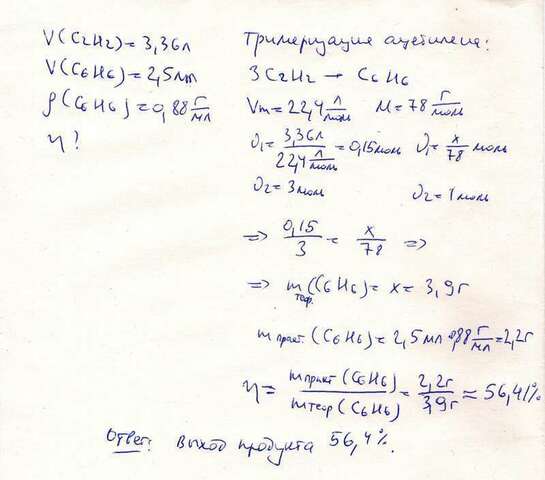 V(C2H2) = 3,36л
V(C6H6) = 2,5мл
ρ(C6H6) = 0,88 г/мл
η?
Тримеризация ацетилена:
3C2H2 → C6H6
Vm = 22,4 л/моль M = 78 г/моль
υ1 = 3,36л / 22,4 л/моль = 0,15моль υ1 = x/78 моль
υ2 = 3моль υ2 = 1моль
=> 0,15/3 = x/78 =>
=> m теор. (C6H6) = x = 3,9г
m практ. (C6H6) = 2,5мл · 0,88 г/мл = 2,2г
η = m практ (C6H6) / m теор (C6H6) = 2,2г / 3,9г ≈ 56,41%
Ответ: выход продукта 56,4%.